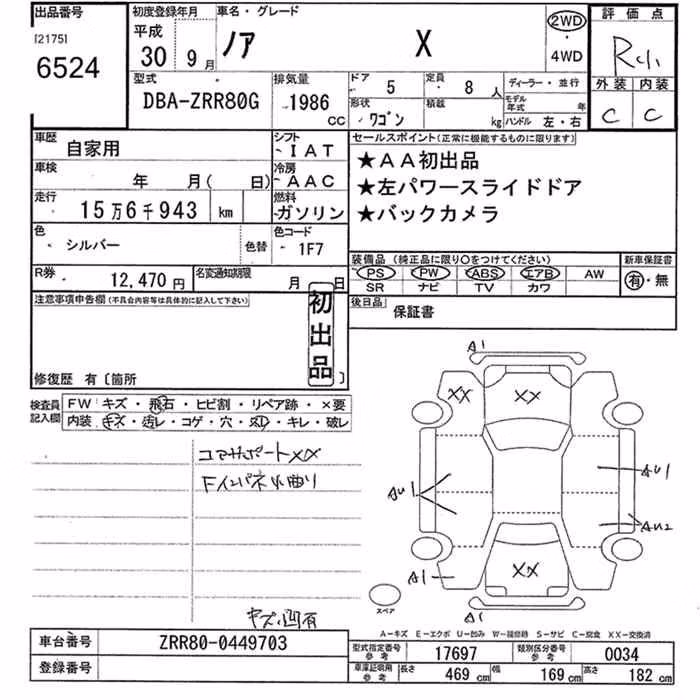 出品番号 初度登録年月 車名・グレード 評価点
[2175]
6524
平成
30 9月 ノア X
2WD
・
4WD
型式 排気量 ドア 5 定員 8人 ディーラー・並行
DBA-ZRR80G 1986cc
形状 ワゴン 積載 kg モデル年式 年 ハンドル 左・右
外装 内装
C C
車歴 自家用 シフト IAT
セールスポイント(正常に機能するものに限ります)
★AA初出品
★左パワースライドドア
★バックカメラ
車検 年 月( 日) 冷房 AAC
走行 15万6千943 km 燃料 ガソリン
色 シルバー 色替 色コード 1F7
装備品 (純正品に限り○をつけてください) 新車保証書
PS PW ABS エアB AW 有・無
SR ナビ TV カワ
R券 12,470円 名変通知期限 月 日
後日品 保証書
注意事項申告欄(不具合内容等は具体的に記入して下さい)
初出品
修復歴 有〔箇所 〕
検査員記入欄 FW キズ・飛石・ヒビ割・リペア跡・×要
内装 キズ・汚レ・コゲ・穴・スレ・キレ・破レ
コアサポートXX
Fインパネ小曲り
キズ・凹有
A1
XX XX
AU1 AU1
AU2
A1 XX
A1
スペア
A-キズ E-エクボ U-凹み W-補修跡 S-サビ C-腐食 XX-交換済
車台番号 ZRR80-0449703
登録番号
型式指定番号 参考 17697 類別区分番号 参考 0034
車庫証明用 参考 長さ 469cm 幅 169cm 高さ 182cm